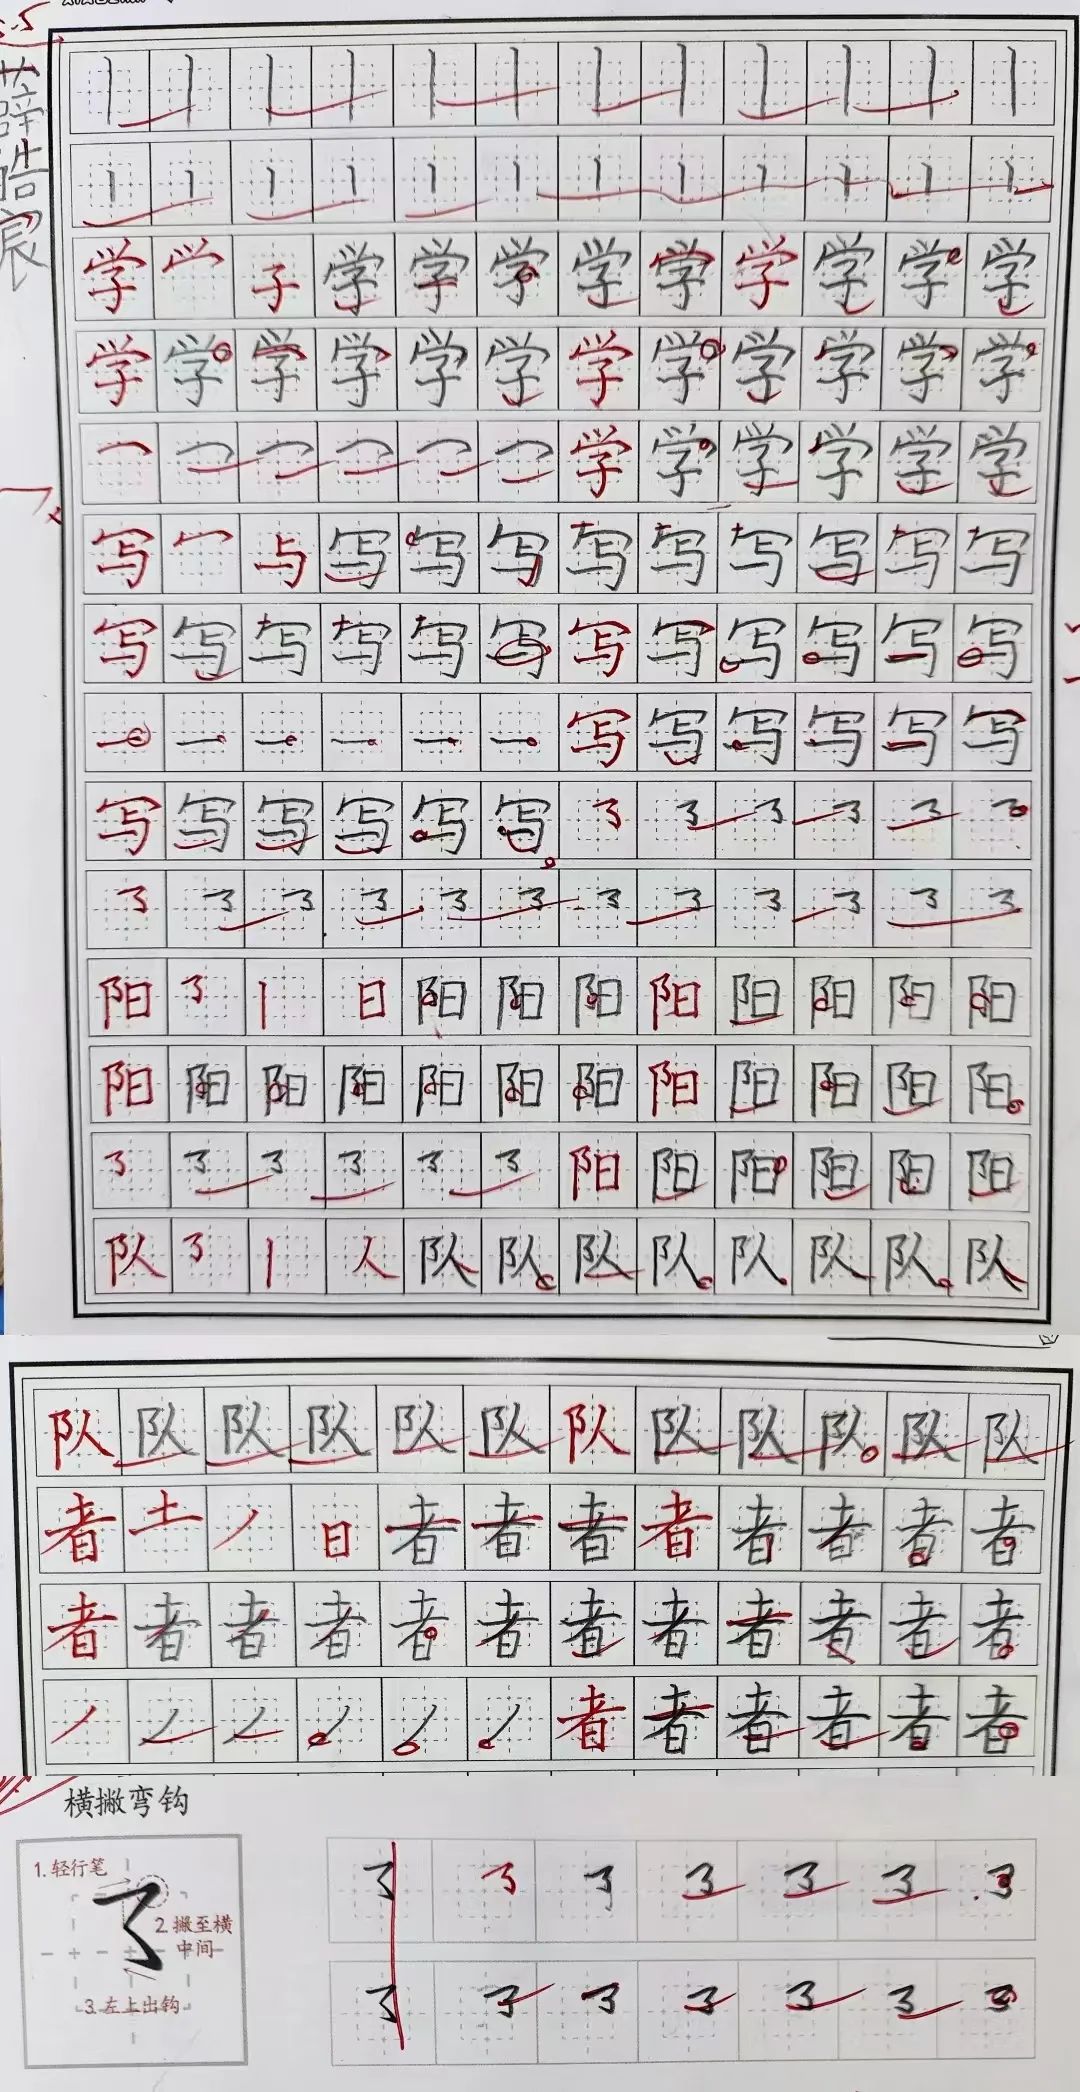 薛皓宸
丨丨丨丨丨丨丨丨丨丨丨丨
丨丨丨丨丨丨丨丨丨丨丨丨
学⺍冖子学学学学学学学学学
学学学学学学学学学学学学
乛乛乛乛乛乛学学学学学学
写冖与写写写写写写写写写
写写写写写写写写写写写写
一一一一一一写写写写写写
写写写写写写㇌㇌㇌㇌㇌㇌
㇌㇌㇌㇌㇌㇌㇌㇌㇌㇌㇌㇌
阳㇌丨日阳阳阳阳阳阳阳阳
阳阳阳阳阳阳阳阳阳阳阳阳
㇌㇌㇌㇌㇌㇌阳阳阳阳阳阳
队㇌丨人队队队队队队队队
队队队队队队队队队队队队
者土丿日者者者者者者者者
者者者者者者者者者者者者
丿丿丿丿丿丿者者者者者者
横撇弯钩
1.轻行笔
㇌
2.撇至横
中间
3.左上出钩
㇌㇌㇌㇌㇌㇌㇌
㇌㇌㇌㇌㇌㇌㇌